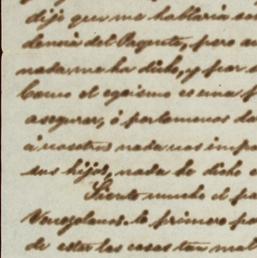 dijo que me hablaria con
dencia del Pagenta, pero au
nada me ha dicho, y por
Como el egoismo es una
asegurar, ó portemonos da
á nosotros nada nos impo
sus hijos, nada he dicho
Siento mucho el pa
Venezolanos. lo primero po
de estar las cosas tan mal